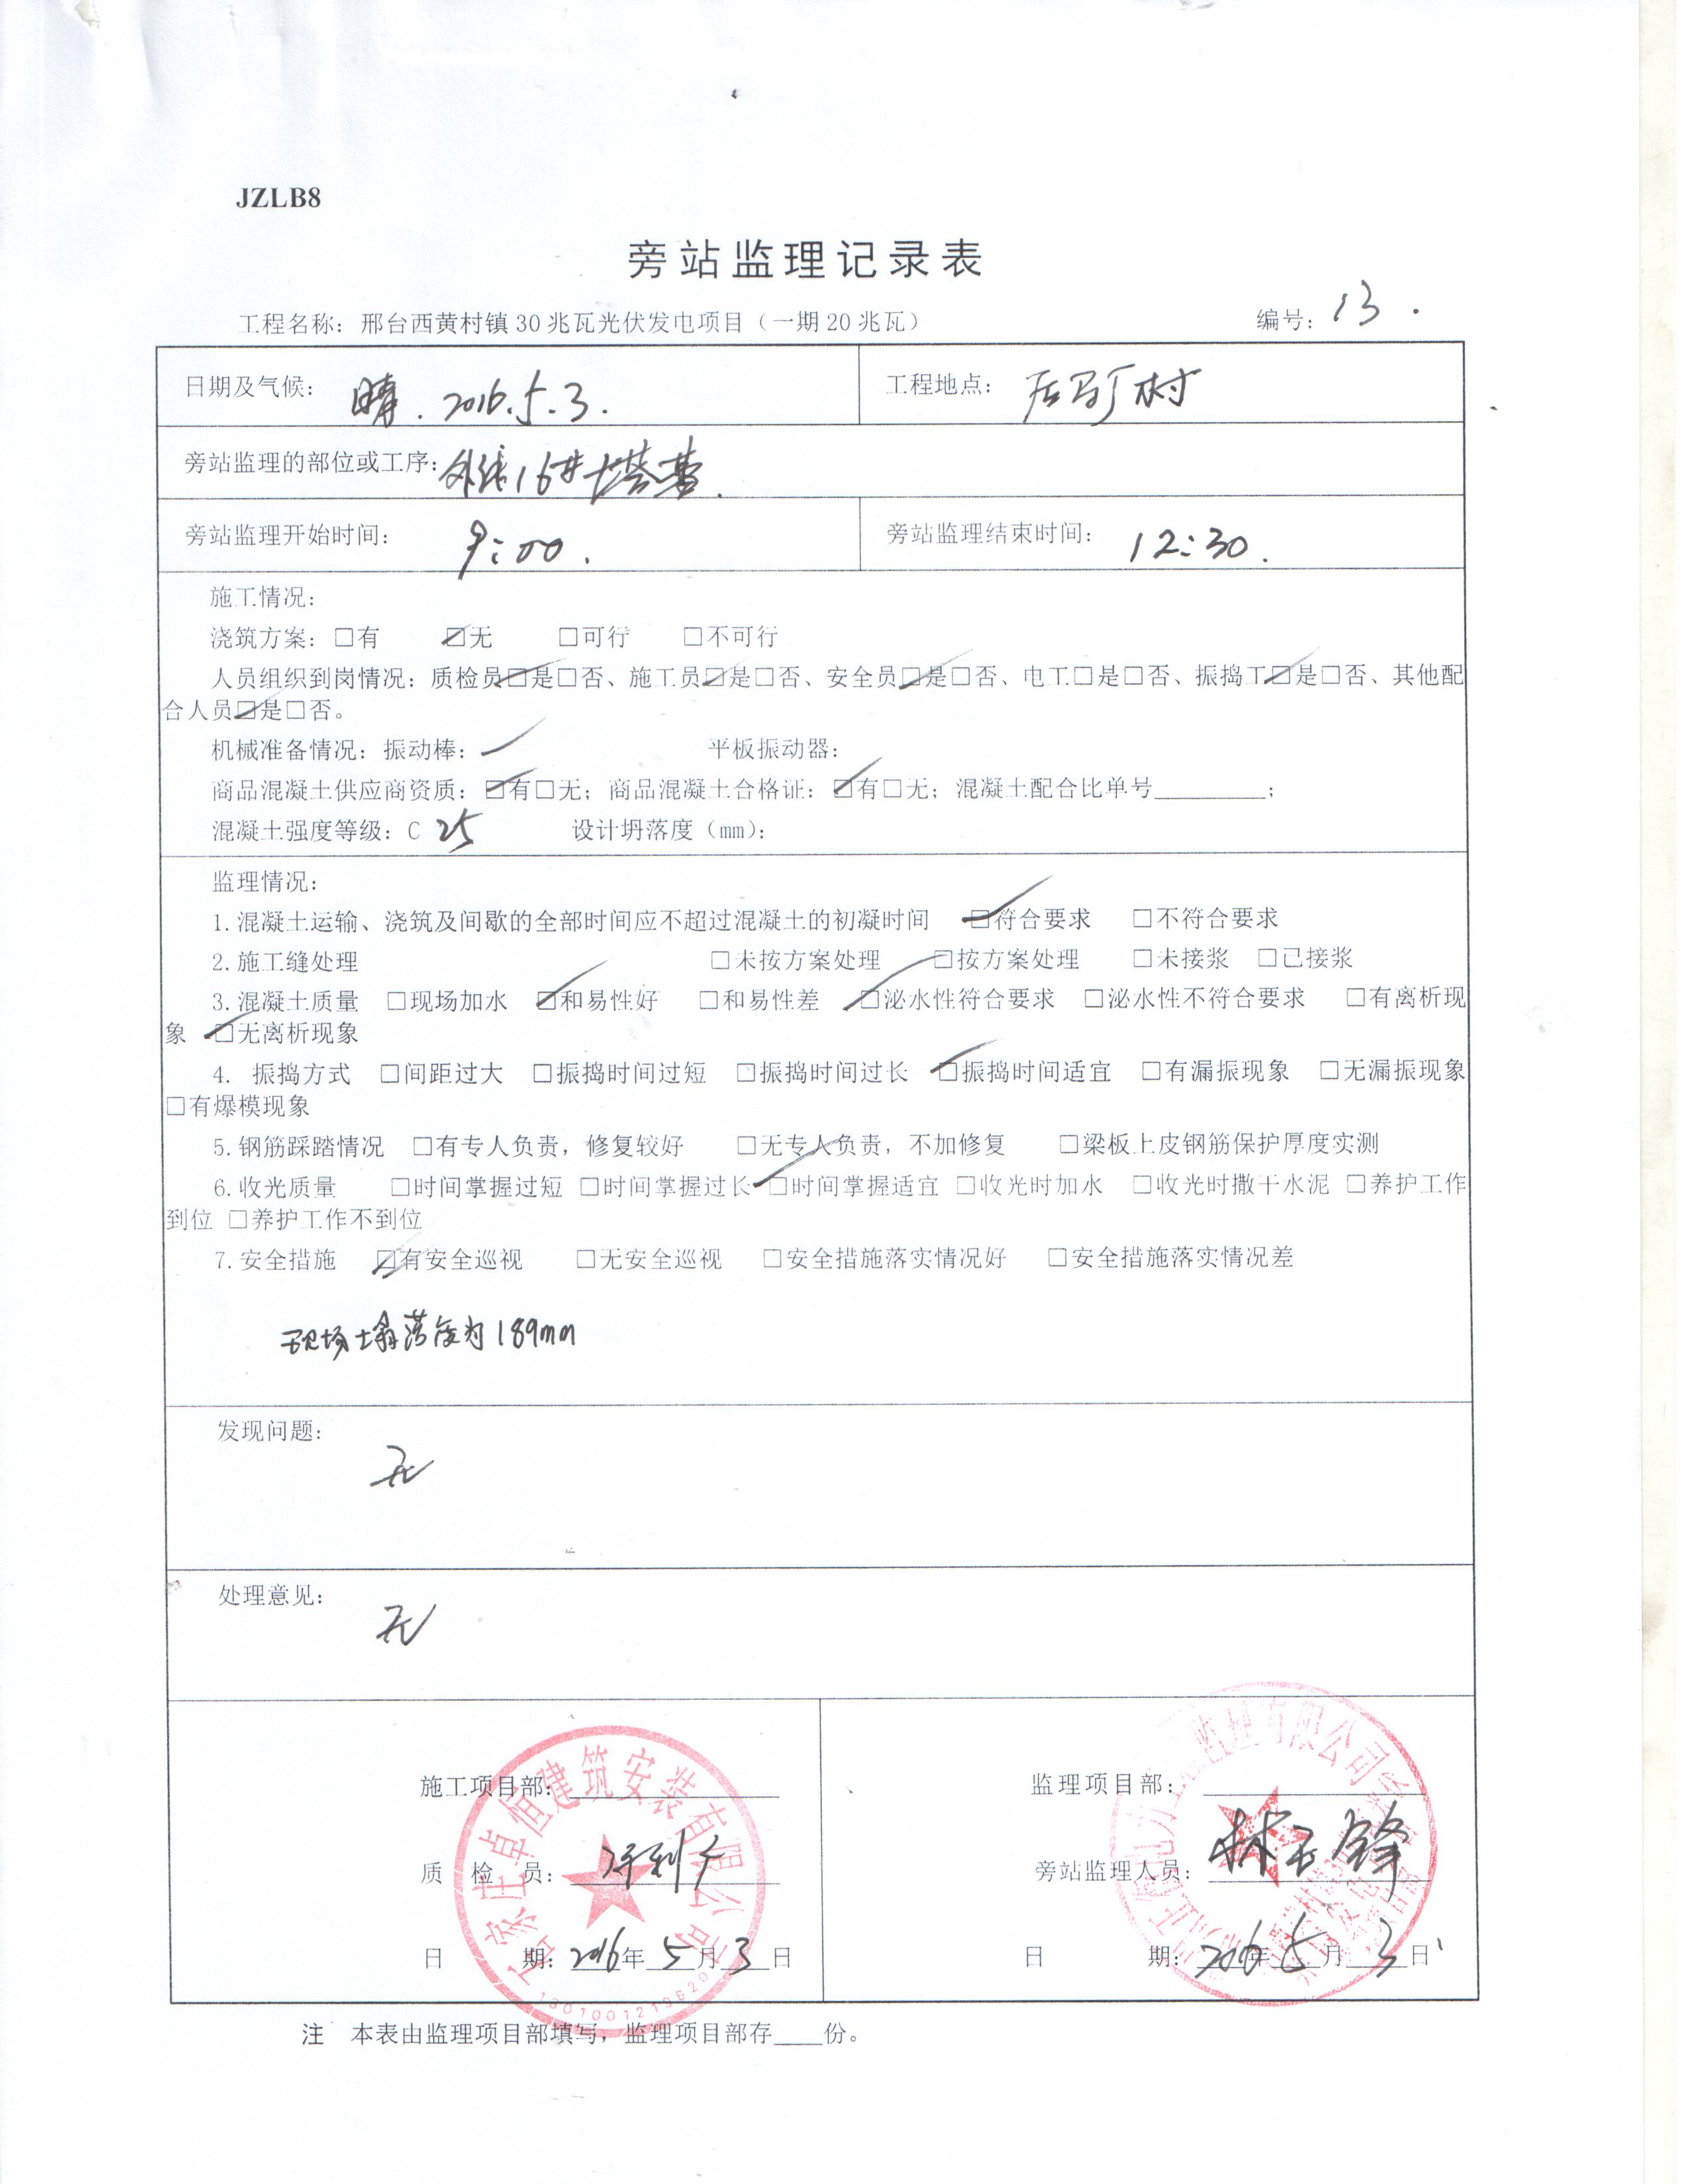 JZLB8
旁站监理记录表
工程名称：邢台西黄村镇30兆瓦光伏发电项目（一期20兆瓦） 编号：13.
日期及气候：晴. 2016.5.3. 工程地点：村
旁站监理的部位或工序：外线16#塔基.
旁站监理开始时间：9:00. 旁站监理结束时间：12:30.
施工情况：
浇筑方案：□有 ☑无 □可行 □不可行
人员组织到岗情况：质检员☑是□否、施工员☑是□否、安全员☑是□否、电工□是□否、振捣工☑是□否、其他配
合人员☑是□否。
机械准备情况：振动棒：✓ 平板振动器：
商品混凝土供应商资质：☑有□无；商品混凝土合格证：☑有□无；混凝土配合比单号________；
混凝土强度等级：C 25 设计坍落度（mm）：
监理情况：
1.混凝土运输、浇筑及间歇的全部时间应不超过混凝土的初凝时间 ☑符合要求 □不符合要求
2.施工缝处理 □未按方案处理 ☑按方案处理 □未接浆 □已接浆
3.混凝土质量 □现场加水 ☑和易性好 □和易性差 ☑泌水性符合要求 □泌水性不符合要求 □有离析现
象 ☑无离析现象
4. 振捣方式 □间距过大 □振捣时间过短 □振捣时间过长 ☑振捣时间适宜 □有漏振现象 □无漏振现象
□有爆模现象
5.钢筋踩踏情况 □有专人负责，修复较好 □无专人负责，不加修复 □梁板上皮钢筋保护厚度实测
6.收光质量 □时间掌握过短 □时间掌握过长 ☑时间掌握适宜 □收光时加水 □收光时撒干水泥 □养护工作
到位 □养护工作不到位
7.安全措施 ☑有安全巡视 □无安全巡视 □安全措施落实情况好 □安全措施落实情况差
现场塌落度为189mm
发现问题：
无
处理意见：
无
施工项目部： 监理项目部：
质 检 员： 旁站监理人员：林玉锋
日 期：2016年5月3日 日 期：2016年5月3日
石家庄卓恒建筑安装有限公司
监理有限公司
注 本表由监理项目部填写，监理项目部存____份。